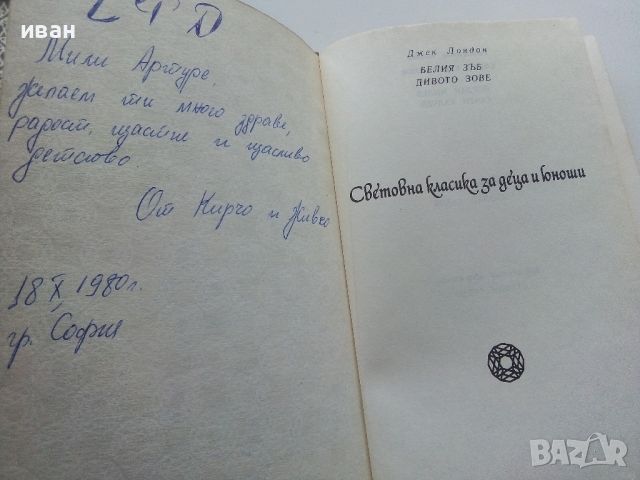 иван
Мили Артуре,
желаем ти много здраве,
радост, щастие и щасливо
детство.
От Кирчо и Живко
18 X 1980г.
гр. София
Джек Лондон
БЕЛИЯ ЗЪБ
ДИВОТО ЗОВЕ
Световна класика за деца и юноши
BAZAR